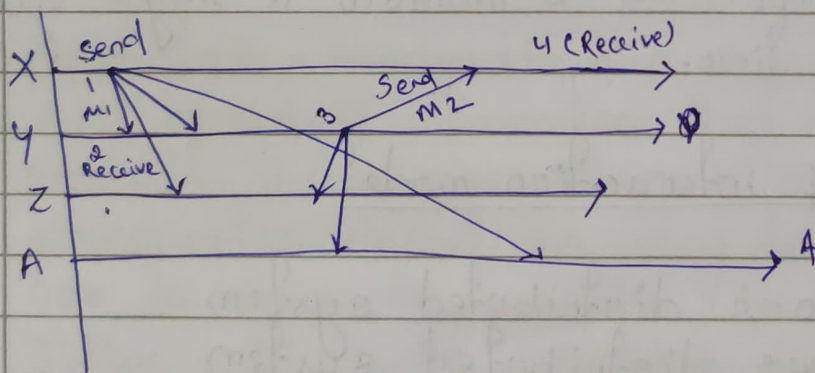 Send
4 (Receive)
X
1
Send
M1
3
M2
Y
2
Receive
Z
A
A